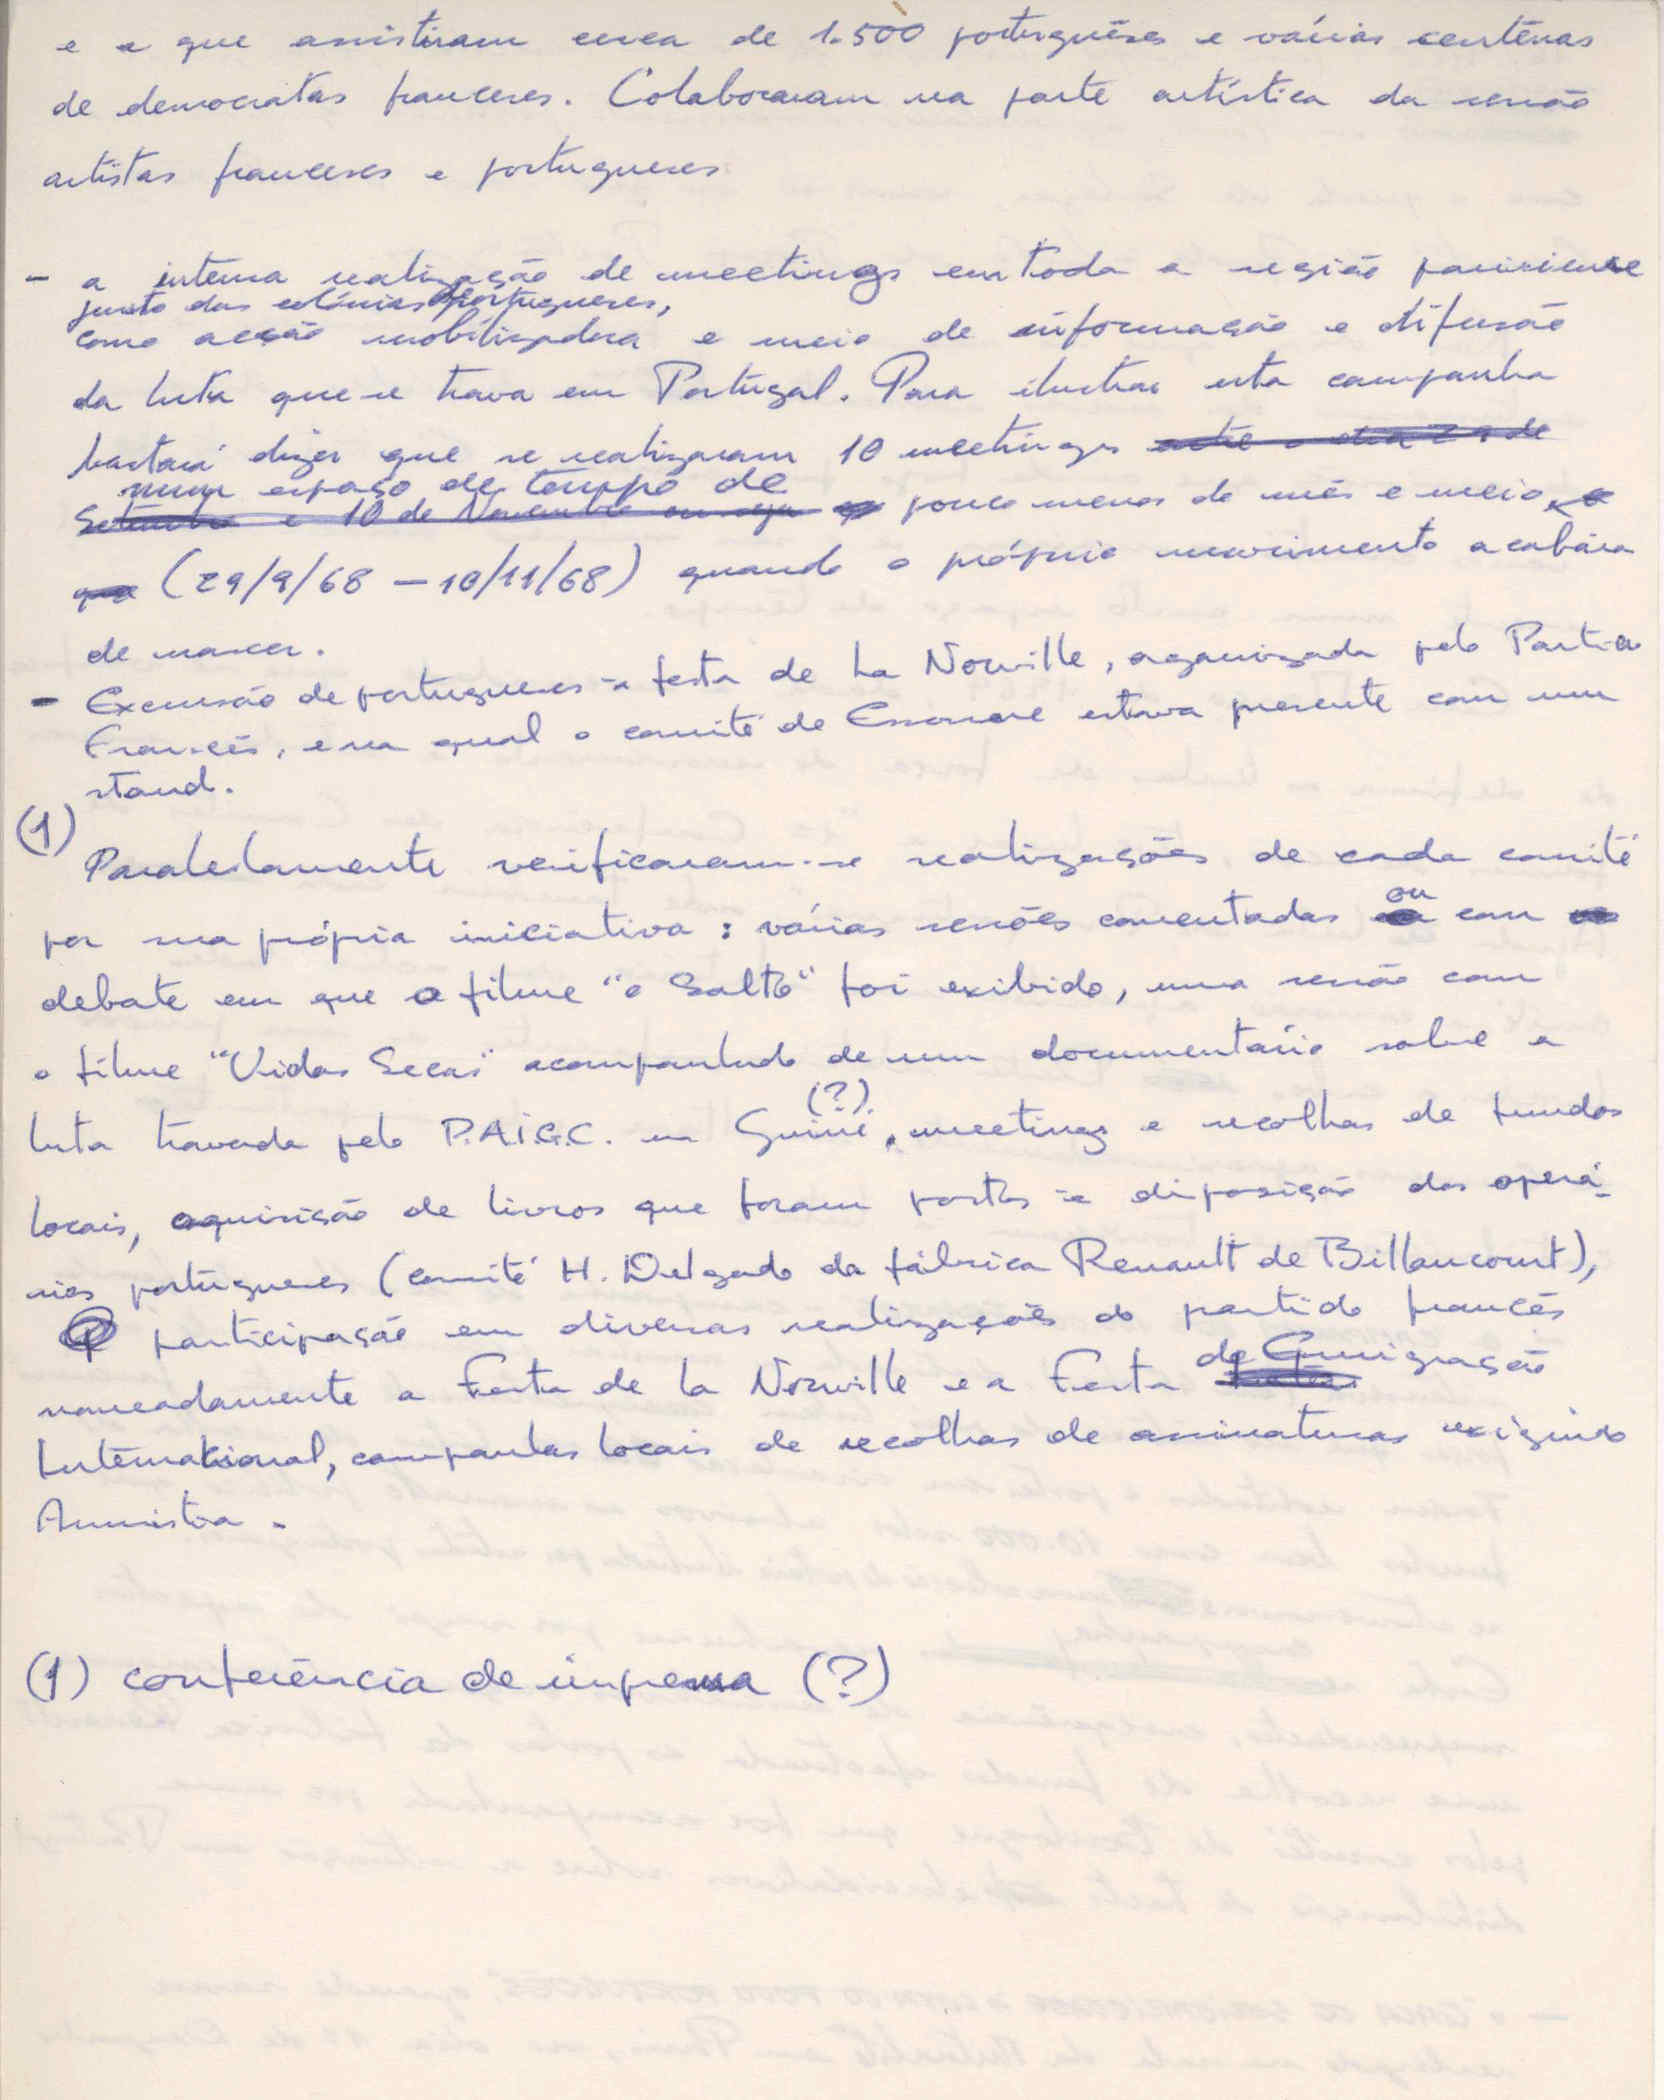 e a que assistiram cerca de 1.500 portuguêses e várias centênas
de democratas franceses. Colaboraram na parte artística da sessão
artistas franceses e portugueses
- a intensa realização de meetings em toda a região parisiense
junto das colónias portugueses,
como acção mobilizadora e meio de informação e difusão
da luta que se trava em Portugal. Para ilustrar esta campanha
bastará dizer que se realizaram 10 meetings entre o dia 29 de
num espaço de tempo de
Setembro e 10 de Novembro ou seja pouco menos de mês e meio,
(29/9/68 - 10/11/68) quando o próprio movimento acabára
de nascer.
- Excursão de portugueses à festa de La Norville, organizada pelo Partido
Francês, e na qual o comité de Essonne estava presente com um
stand.
(1)
Paralelamente verificaram-se realizações de cada comité
por sua própria iniciativa: várias sessões comentadas ou com
debate em que o filme "o Salto" foi exibido, uma sessão com
o filme "Vidas Secas" acompanhado de um documentário sobre a
luta travada pelo P.A.I.G.C. na Guiné (?), meetings e recolhas de fundos
locais, aquisição de livros que foram postos à disposição dos operá-
rios portugueses (comité H. Delgado da fábrica Renault de Billancourt),
participação em diversas realizações do partido francês
nomeadamente a Festa de la Norville e a Festa da Emigração
International, campanhas locais de recolhas de assinaturas exigindo
Amnistia.
(1) conferência de imprensa (?)